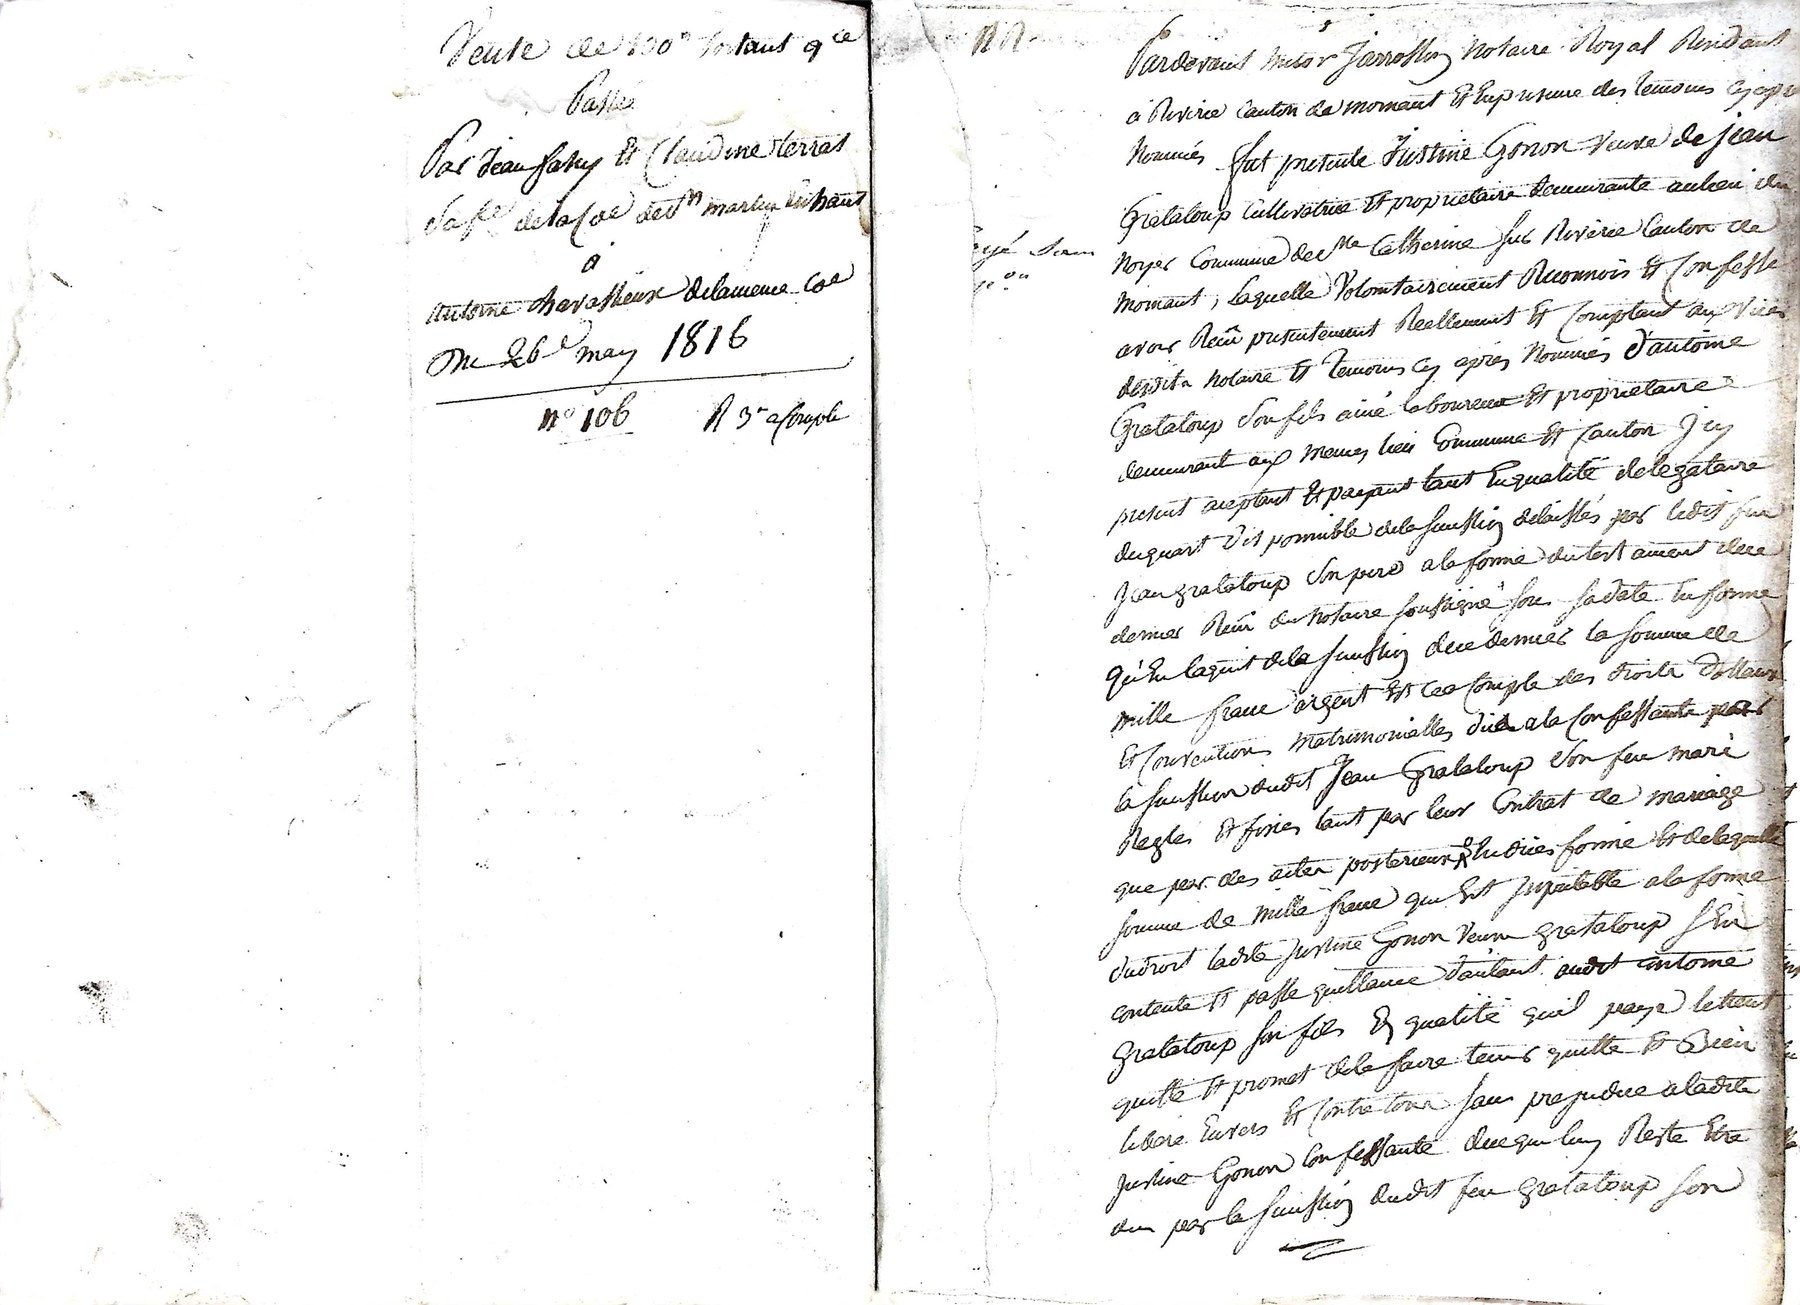 Vente de 100 f portant qce
Passée
Par Jean faty et Claudine terrat
Sa fe de la Coe de St martin En haut
à
antoine chavassieux de la meme Coe
Du 26e may 1816
n° 106 R 3 f a Compte
Pardevant notaire Royal Residant
à Riverie Canton de mornant Et En presence des temoins cy apres
Nommés fut presente Justine Gonon Veuve de jean
Grataloup Cultivatrice Et proprietaire demeurante au lieu du
Noyer Commune de Ste Catherine sur Riverie Canton de
mornant, Laquelle Volontairement Reconnois Et Confesse
avoir Reçû presentement Reellement Et Comptant aux vües
desdits Notaire Et Temoins cy après Nommés d'antoine
Grataloup Son fils ainé laboureur Et proprietaire
demeurant aux memes lieu Commune Et Canton Icy
present aceptant Et payant tant En qualité de legataire
du quart disponnible de la sucssion délaissés par ledit feu
Jean grataloup Son pere a la forme du testament de ce
dernier Reçû du Notaire soussigné sous sa date En forme
qu'En laquit de la sucssion de ce dernier la somme de
mille franc argent Et a Compte des droits
Et Conventions matrimonialles düe a la Confessante par
la sucssion dudit Jean Grataloup Son feu mari
Reglés Et fixés tant par leur Contrat de mariage
que par des actes posterieurs En dües forme Et de laquelle
somme de mille franc qui Est Imputable a la forme
du droit ladite Justine Gonon Veuve grataloup s'En
contente Et passe quittance d'autant audit antoine
grataloup son fils En qualité qu'il paye le tient
quitte Et promet de le faire tenir quitte Et Bien
libéré Envers Et Contre tous sans prejudice a ladite
Justine Gonon Confessante de ce qui luy Reste Etre
du par la sucssion dudit feu grataloup son